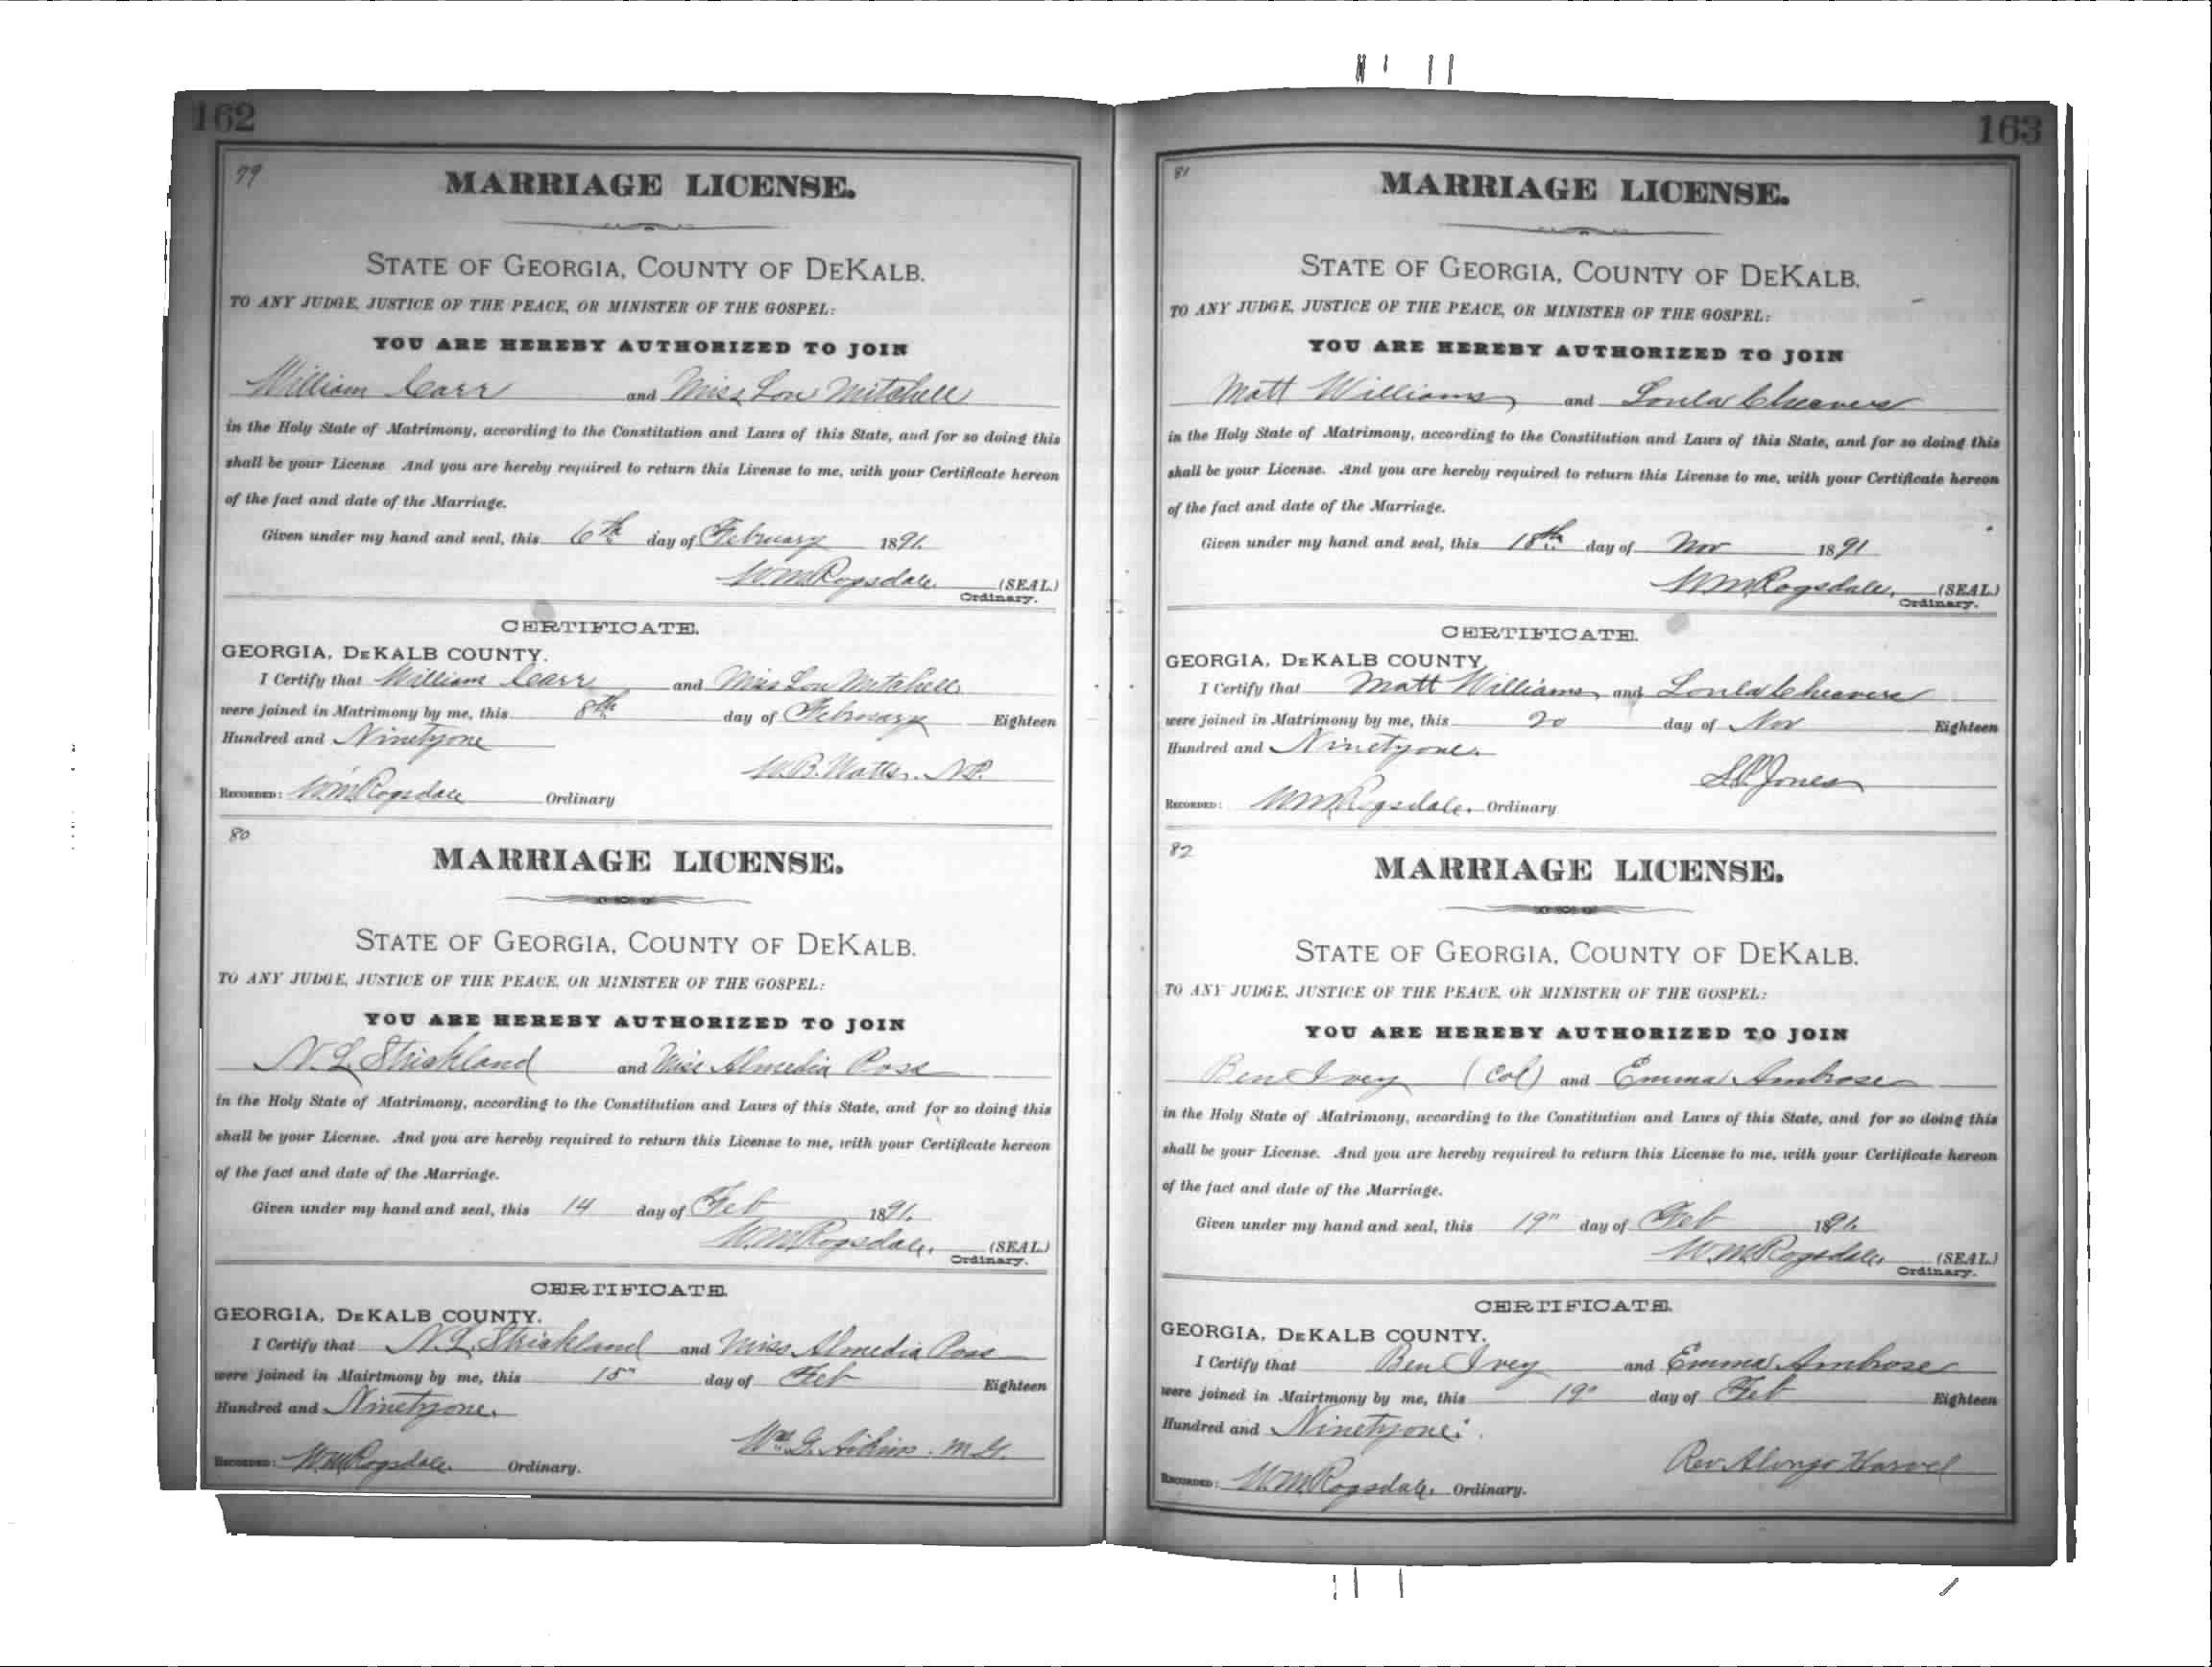 162
79
MARRIAGE LICENSE.
STATE OF GEORGIA, COUNTY OF DEKALB.
TO ANY JUDGE, JUSTICE OF THE PEACE, OR MINISTER OF THE GOSPEL:
YOU ARE HEREBY AUTHORIZED TO JOIN
William Carr and Miss Lou Mitchell
in the Holy State of Matrimony, according to the Constitution and Laws of this State, and for so doing this
shall be your License. And you are hereby required to return this License to me, with your Certificate hereon
of the fact and date of the Marriage.
Given under my hand and seal, this 6th day of February 1891.
W.M. Ragsdale. (SEAL)
Ordinary.
CERTIFICATE.
GEORGIA, DEKALB COUNTY.
I Certify that William Carr and Miss Lou Mitchell
were joined in Matrimony by me, this 8th day of February Eighteen
Hundred and Ninetyone
W.B. Watts. N.P.
RECORDED: W.M. Ragsdale Ordinary
80
MARRIAGE LICENSE.
STATE OF GEORGIA, COUNTY OF DEKALB.
TO ANY JUDGE, JUSTICE OF THE PEACE, OR MINISTER OF THE GOSPEL:
YOU ARE HEREBY AUTHORIZED TO JOIN
N. L. Strickland and Miss Almedia Poss
in the Holy State of Matrimony, according to the Constitution and Laws of this State, and for so doing this
shall be your License. And you are hereby required to return this License to me, with your Certificate hereon
of the fact and date of the Marriage.
Given under my hand and seal, this 14 day of Feb 1891.
W.M. Ragsdale. (SEAL)
Ordinary.
CERTIFICATE.
GEORGIA, DEKALB COUNTY.
I Certify that N. L. Strickland and Miss Almedia Poss
were joined in Mairtmony by me, this 15" day of Feb Eighteen
Hundred and Ninetyone.
Wm. G. Aikins. M.G.
RECORDED: W.M. Ragsdale. Ordinary.
163
81
MARRIAGE LICENSE.
STATE OF GEORGIA, COUNTY OF DEKALB.
TO ANY JUDGE, JUSTICE OF THE PEACE, OR MINISTER OF THE GOSPEL:
YOU ARE HEREBY AUTHORIZED TO JOIN
Matt Williams and Loula Cheavers
in the Holy State of Matrimony, according to the Constitution and Laws of this State, and for so doing this
shall be your License. And you are hereby required to return this License to me, with your Certificate hereon
of the fact and date of the Marriage.
Given under my hand and seal, this 18th day of Nov 1891
W.M. Ragsdale. (SEAL)
Ordinary.
CERTIFICATE.
GEORGIA, DEKALB COUNTY,
I Certify that Matt Williams and Loula Cheavers
were joined in Matrimony by me, this 20 day of Nov Eighteen
Hundred and Ninetyone.
S.P. Jones
RECORDED: W.M. Ragsdale. Ordinary
82
MARRIAGE LICENSE.
STATE OF GEORGIA, COUNTY OF DEKALB.
TO ANY JUDGE, JUSTICE OF THE PEACE, OR MINISTER OF THE GOSPEL:
YOU ARE HEREBY AUTHORIZED TO JOIN
Ben Ivey (Col) and Emma Ambrose
in the Holy State of Matrimony, according to the Constitution and Laws of this State, and for so doing this
shall be your License. And you are hereby required to return this License to me, with your Certificate hereon
of the fact and date of the Marriage.
Given under my hand and seal, this 19" day of Feb 1891.
W.M. Ragsdale. (SEAL)
Ordinary.
CERTIFICATE.
GEORGIA, DEKALB COUNTY.
I Certify that Ben Ivey and Emma Ambrose
were joined in Mairtmony by me, this 19" day of Feb Eighteen
Hundred and Ninetyone.
Rev. Alonzo Harvel
RECORDED: W.M. Ragsdale. Ordinary.